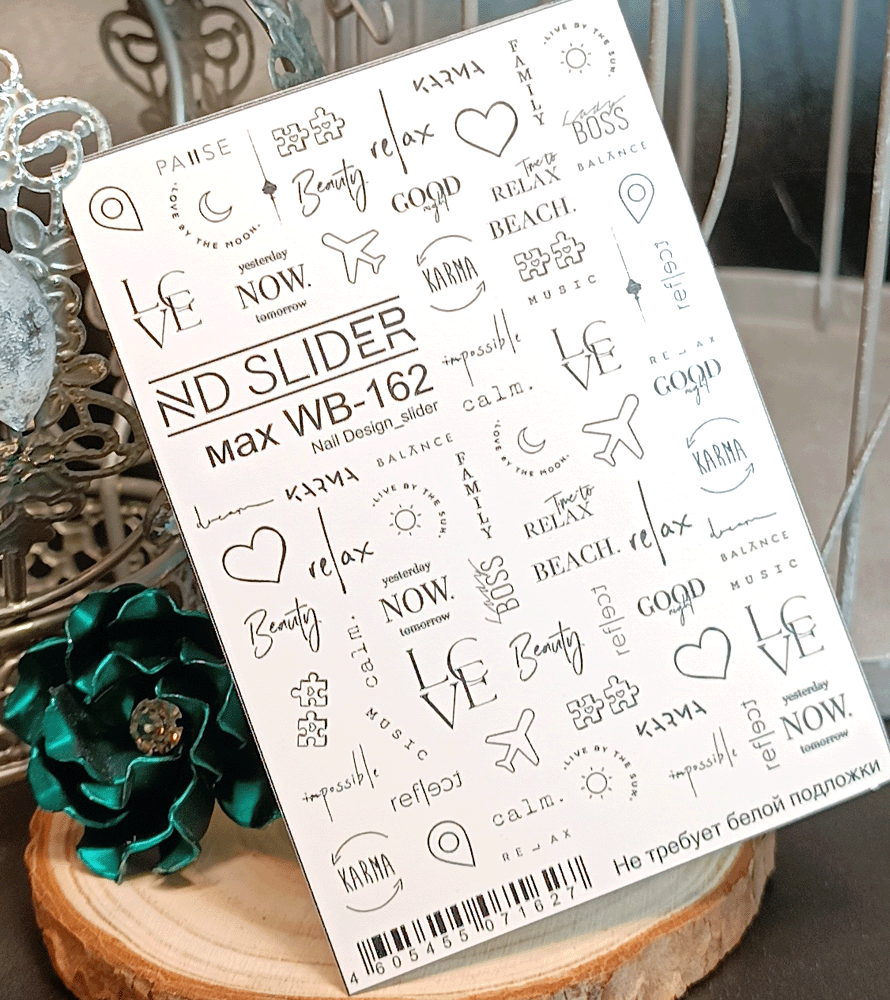 KARMA
FAMILY
·LIVE BY THE SUN·
PAIISE
relax
Lady
BOSS
BALANCE
·LOVE BY THE MOON·
Beauty.
GOOD
night
Time to
RELAX
BEACH.
LOVE
yesterday
NOW.
tomorrow
KARMA
MUSIC
reflect
ND SLIDER
max WB-162
Nail Design_slider
impossible
calm.
LOVE
RELAX
GOOD
night
BALANCE
FAMILY
·LOVE BY THE MOON·
KARMA
dream
KARMA
·LIVE BY THE SUN·
Time to
RELAX
relax
dream
relax
yesterday
NOW.
tomorrow
Lady
BOSS
BEACH.
BALANCE
MUSIC
Beauty.
calm.
LOVE
Beauty.
reflect
GOOD
night
LOVE
MUSIC
KARMA
yesterday
NOW.
tomorrow
impossible
reflect
·LIVE BY THE SUN·
impossible
reflect
calm.
RELAX
KARMA
Не требует белой подложки
4 605455 071627